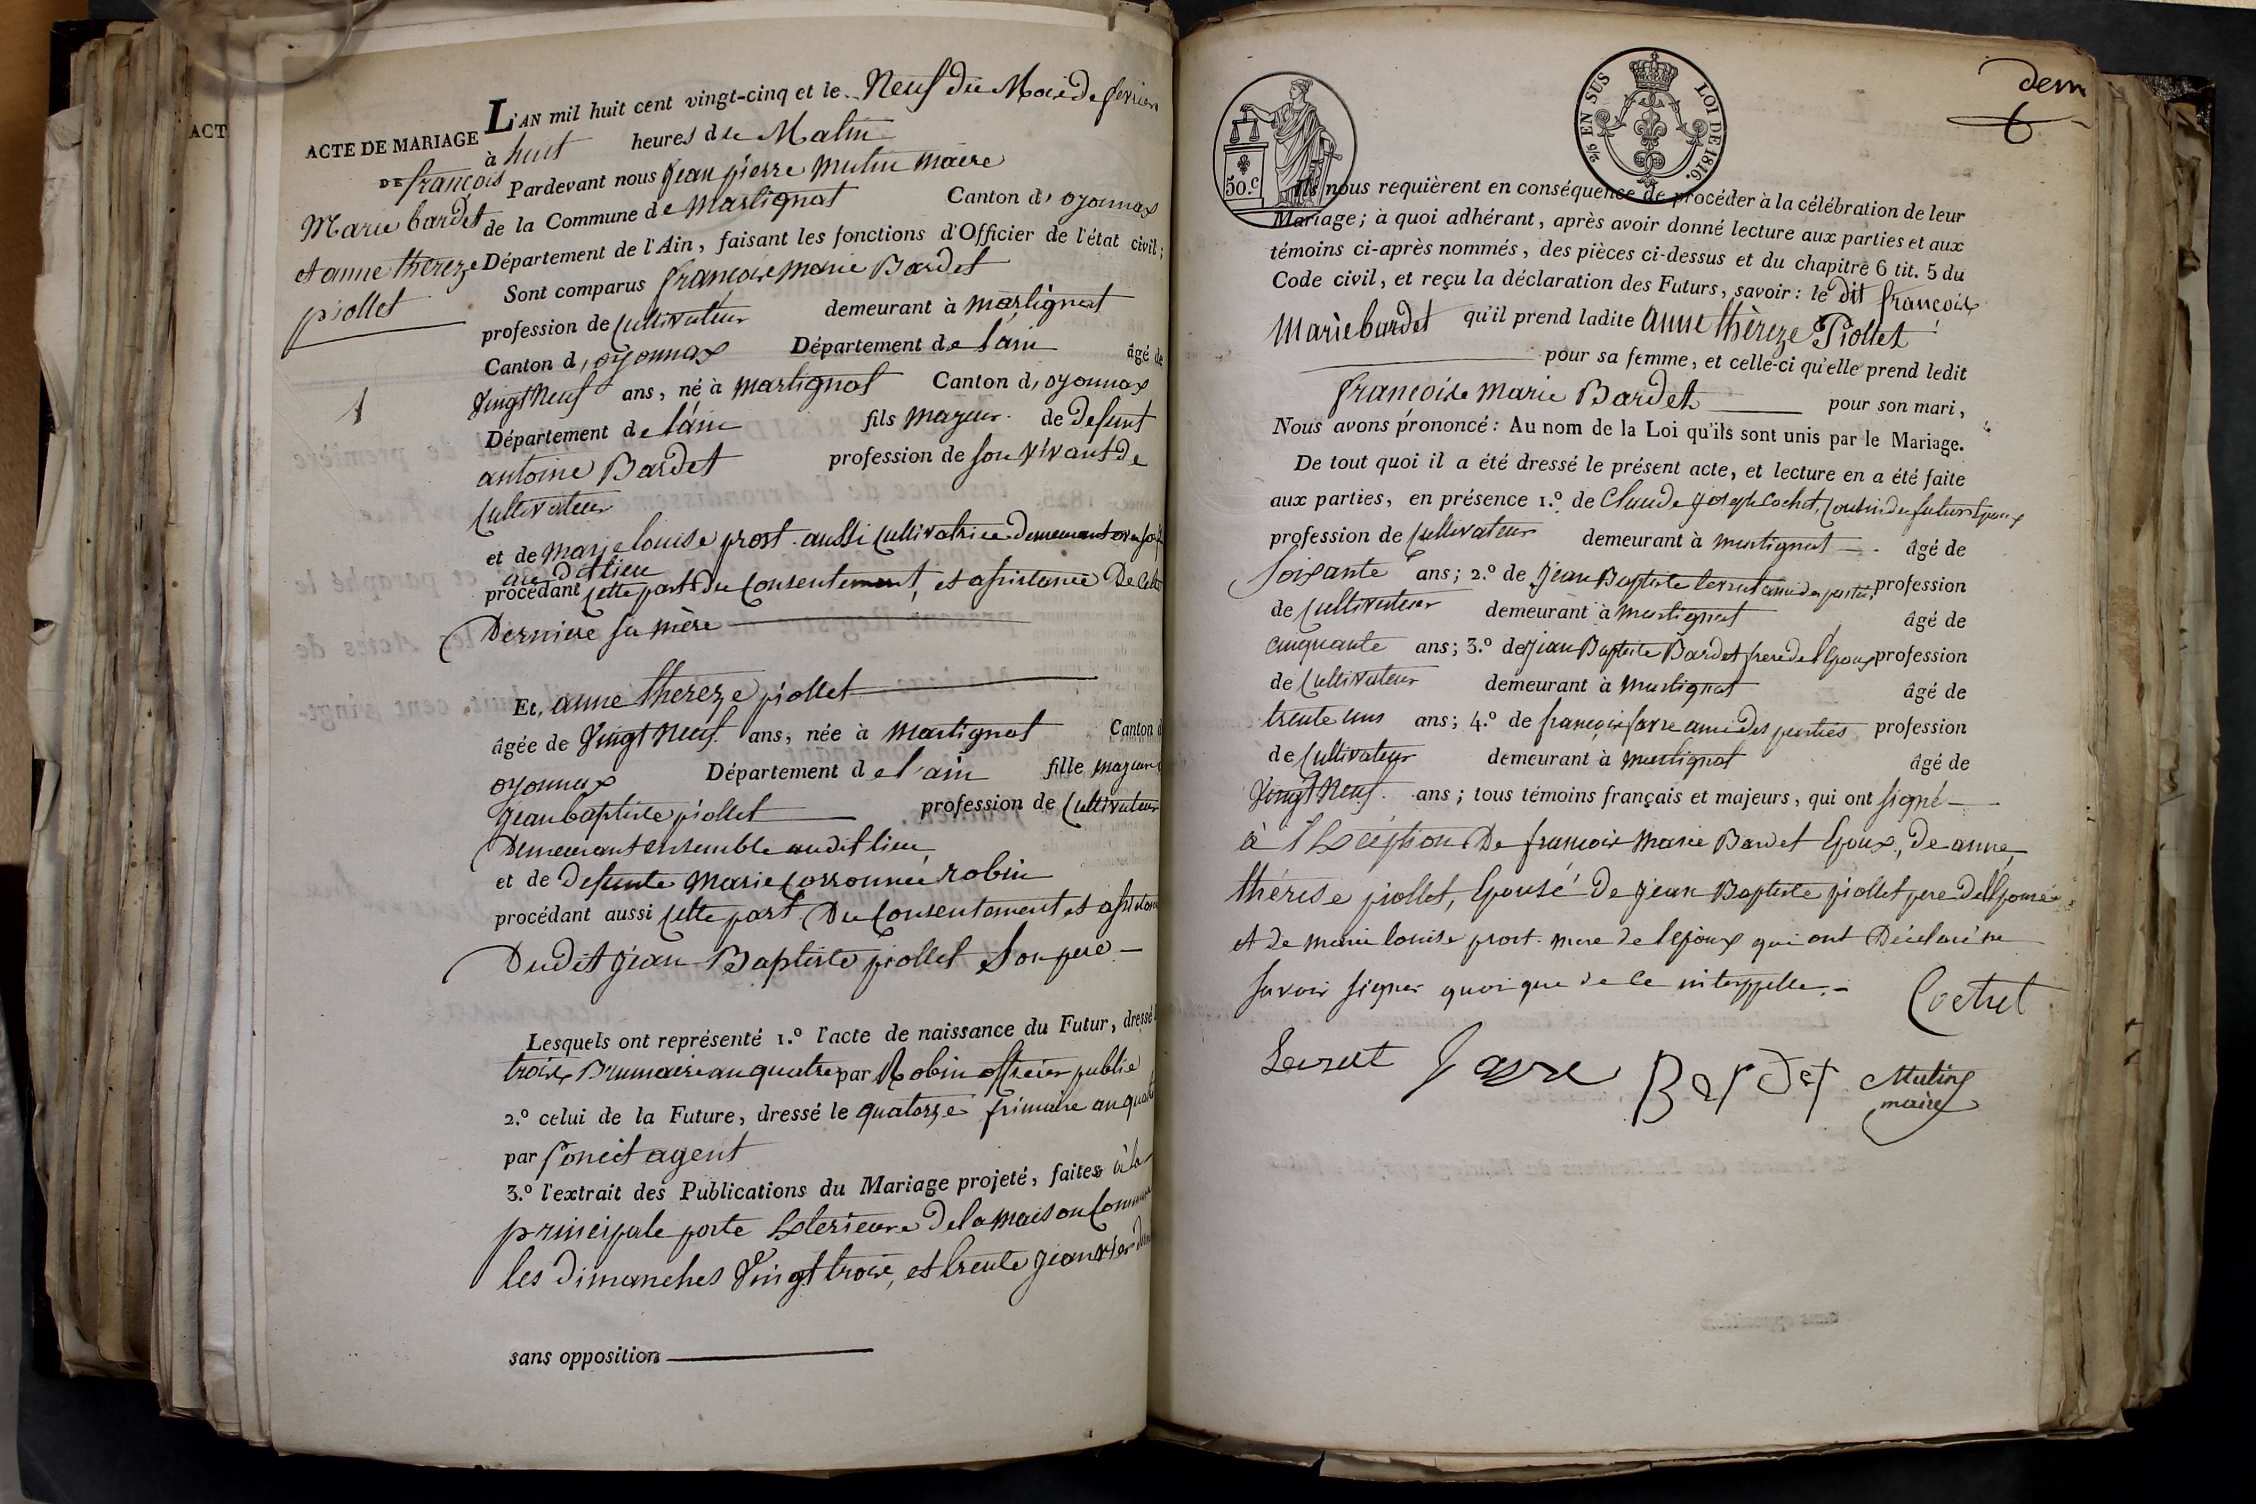 ACT
ACTE DE MARIAGE
DE françois
Marie bardet
et anne thereze
piollet
1
L'AN mil huit cent vingt-cinq et le Neuf du Mois de fevrier
à huit heures du Matin
Pardevant nous jean pierre Mutin Maire
de la Commune de Martignat Canton d'oyonnax
Département de l'Ain, faisant les fonctions d'Officier de l'état civil;
Sont comparus françois marie Bardet
profession de Cultivateur demeurant à martignat
Canton d'oyonnax Département de l'ain âgé de
Vingt Neuf ans, né à martignat Canton d'oyonnax
Département de l'ain fils majeur de defunt
antoine Bardet profession de son vivant de
Cultivateur
et de marie louise prost aussi Cultivatrice demeurant
au dit lieu
procédant cette part du Consentement, et assistance De Cette
Derniere sa mère
Et, anne thereze piollet
âgée de Vingt Neuf ans, née à Martignat Canton d
oyonnax Département de l'ain fille majeure
jean baptiste piollet profession de Cultivateur
Demeurant ensemble audit lieu,
et de defunte Marie robin
procédant aussi cette part Du Consentement et assistance
Dudit jean Baptiste piollet son pere
Lesquels ont représenté 1.º l'acte de naissance du Futur, dressé
trois Brumaire an quatre par Robin officier public
2.º celui de la Future, dressé le quatorze frimaire an quatre
par Poncet agent
3.º l'extrait des Publications du Mariage projeté, faites à la
principale porte Exterieure de la maison Commune
les dimanches Vingt trois, et trente janvier
sans opposition
50.c
2/5 EN SUS LOI DE 1816.
dem
6
Ils nous requièrent en conséquence de procéder à la célébration de leur
Mariage; à quoi adhérant, après avoir donné lecture aux parties et aux
témoins ci-après nommés, des pièces ci-dessus et du chapitre 6 tit. 5 du
Code civil, et reçu la déclaration des Futurs, savoir: le dit françois
Marie bardet qu'il prend ladite anne thèreze Piollet
pour sa femme, et celle-ci qu'elle prend ledit
françois marie Bardet pour son mari,
Nous avons prononcé: Au nom de la Loi qu'ils sont unis par le Mariage.
De tout quoi il a été dressé le présent acte, et lecture en a été faite
aux parties, en présence 1.º de Claude joseph Cochet, Cousin du futur Epoux
profession de Cultivateur demeurant à martignat âgé de
soixante ans; 2.º de jean Baptiste Levrat ami des parties profession
de Cultivateur demeurant à martignat âgé de
cinquante ans; 3.º de jean Baptiste Bardet frere de l'Epoux profession
de Cultivateur demeurant à martignat âgé de
trente uns ans; 4.º de françois favre ami des parties profession
de Cultivateur demeurant à martignat âgé de
Vingt Neuf ans; tous témoins français et majeurs, qui ont signé
à l'Exception De françois Marie Bardet Epoux, de anne
thérese piollet, Epouse de jean Baptiste piollet pere de l'Epouse
et de marie louise prost mere de l'epoux qui ont Déclaré ne
savoir signer quoique de ce interppelle.
Cochet
Levrat favre Bardet Mutin
maire